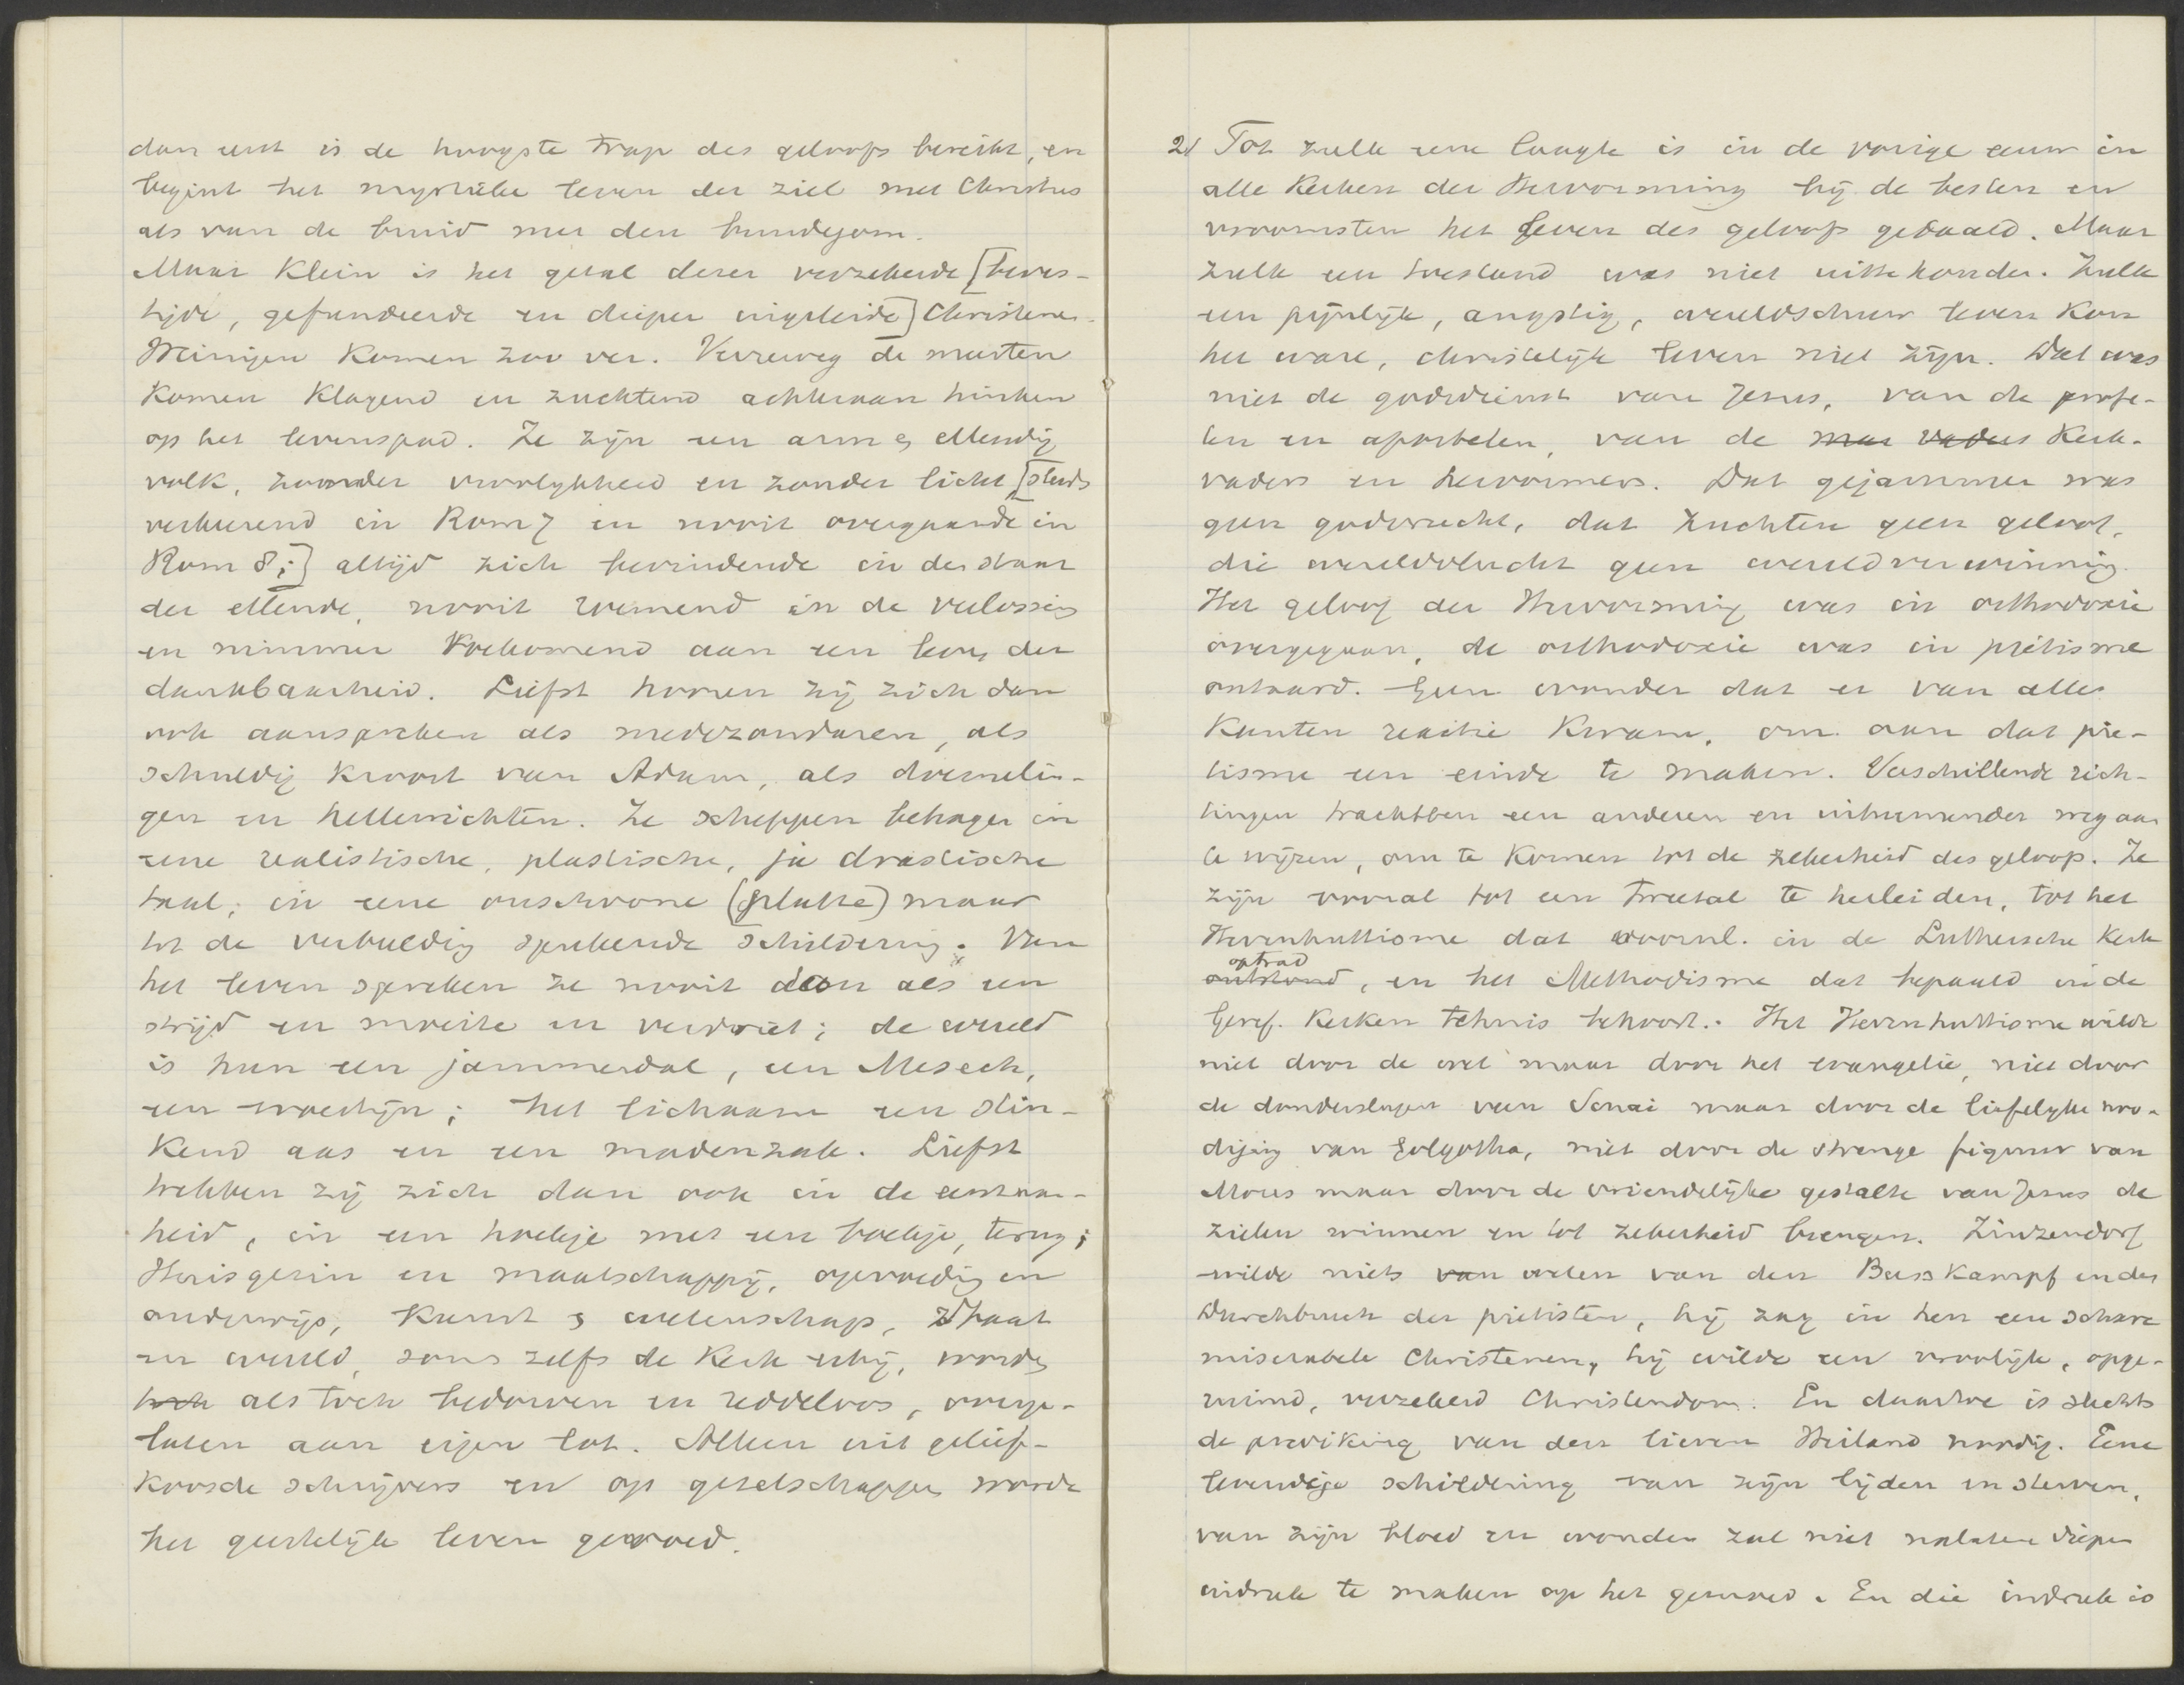 dan eerst is de hoogste trap des geloofs bereikt, en
begint het mystieke leven der ziel met Christus
als van de bruid met den bruidegom.
Maar klein is het getal dezer verzekerde [beves-
tigde, gefundeerde en dieper ingeleide] Christenen.
Weinigen komen zoo ver. Verreweg de meesten
komen klagend en zuchtend achteraan hinken
op het levenspad. Ze zijn een arm & ellendig
volk, zonder vroolijkheid en zonder licht [steeds
verkeerend in Rom 7 en nooit overgaande in
Rom 8;] altijd zich bevindende in den staat
der ellende, nooit roemend in de verlossing
en nimmer toekomend aan een leven der
dankbaarheid. Liefst hooren zij zich dan
ook aanspreken als medezondaren, als
schuldig kroost van Adam, als doemelin-
gen en hellewichten. Ze scheppen behagen in
eene realistische, plastische, ja drastische
taal; in eene onschoone (platte) maar
tot de verbeelding sprekende schildering. Van
het leven spreken ze nooit dan als een
strijd en moeite en verdriet; de wereld
is hun een jammerdal, een Mesech,
een woestijn; het lichaam een stin-
kend aas en een madenzak. Liefst
trekken zij zich dan ook in de eenzaam-
heid, in een hoekje met een boekje, terug;
Huisgezin en maatschappij, opvoeding en
onderwijs, kunst & wetenschap, Staat
en wereld, soms zelfs de Kerk erbij, worden
toch als toch bedorven en reddeloos, overge-
laten aan eigen lot. Alleen uit gelief-
koosde schrijvers en op gezelschappen wordt
het geestelijk leven gevoed.
2/ Tot zulk eene laagte is in de vorige eeuw in
alle Kerken der Hervorming bij de besten en
vroomsten het leven des geloofs gedaald. Maar
zulk een toestand was niet uittehouden. Zulk
een pijnlijk, angstig, wereldschuw leven kon
het ware, christelijk leven niet zijn. Dat was
niet de godsdienst van Jezus, van de profe-
ten en apostelen, van de vaders Kerk-
vaders en hervormers. Dat gejammer was
geen godsvrucht, dat zuchten geen geloof,
die wereldvlucht geen wereldverwinning.
Het geloof der Hervorming was in orthodoxie
overgegaan, de orthodoxie was in piëtisme
ontaard. Geen wonder dat er van alle
kanten reactie kwam, om aan dat pie-
tisme een einde te maken. Verschillende rich-
tingen trachtten een anderen en uitnemender weg aan
te wijzen, om te komen tot de zekerheid des geloofs. Ze
zijn vooral tot een tweetal te herleiden, tot het
Herrnhuttisme dat voornl. in de Luthersche Kerk
optrad
ontstond, en het Methodisme dat bepaald in de
Geref. Kerken tehuis behoort. Het Herrnhuttisme wilde
niet door de wet maar door het evangelie, niet door
de donderslagen van Sinai maar door de liefelijke noo-
diging van Golgotha, niet door de strenge figuur van
Mozes maar door de vriendelijke gestalte van Jezus de
zielen winnen en tot zekerheid brengen. Zinzendorf
wilde niets van weten van den Busskampf en den
Durchbruch der piëtisten, hij zag in hen eene schare
miserabele Christenen, hij wilde een vroolijk, opge-
ruimd, verzekerd Christendom. En daartoe is slechts
de prediking van den lieven Heiland noodig. Eene
levendige schildering van zijn lijden en sterven,
van zijn bloed en wonden zal niet nalaten diepen
indruk te maken op het gemoed. En die indruk is